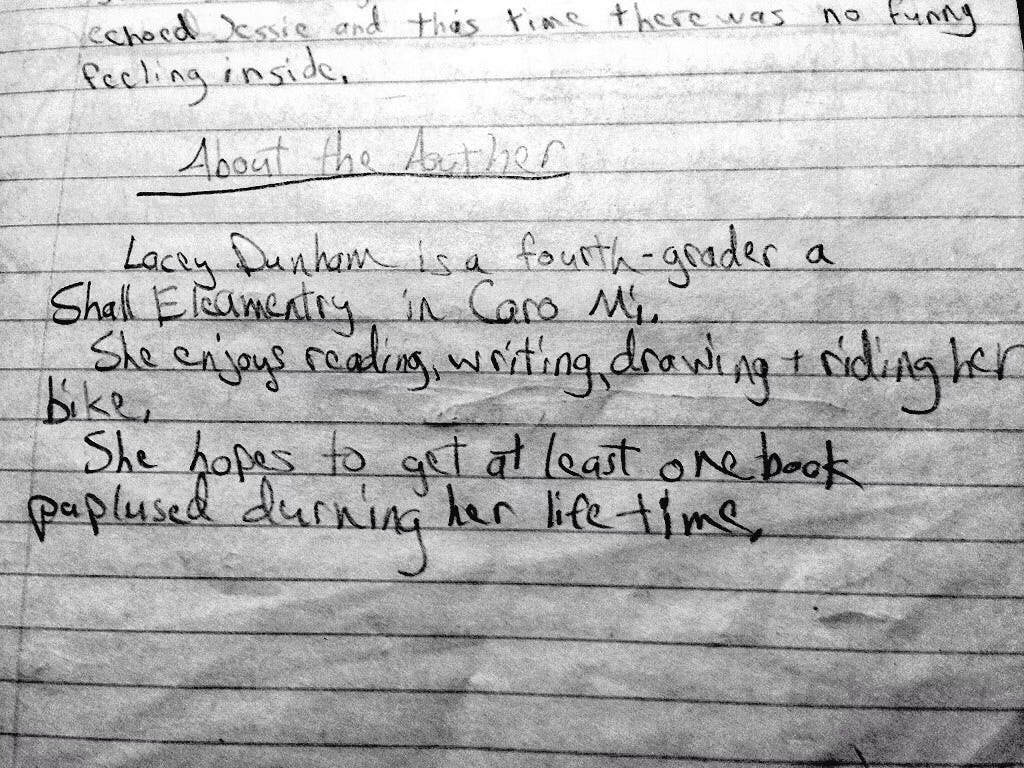 echoed Jessie and this time there was no funny
feeling inside.
About the Auther
Lacey Dunham is a fourth-grader a
Shall Eleamentry in Caro Mi.
She enjoys reading, writing, drawing + riding her
bike.
She hopes to get at least one book
paplused durning her life time.